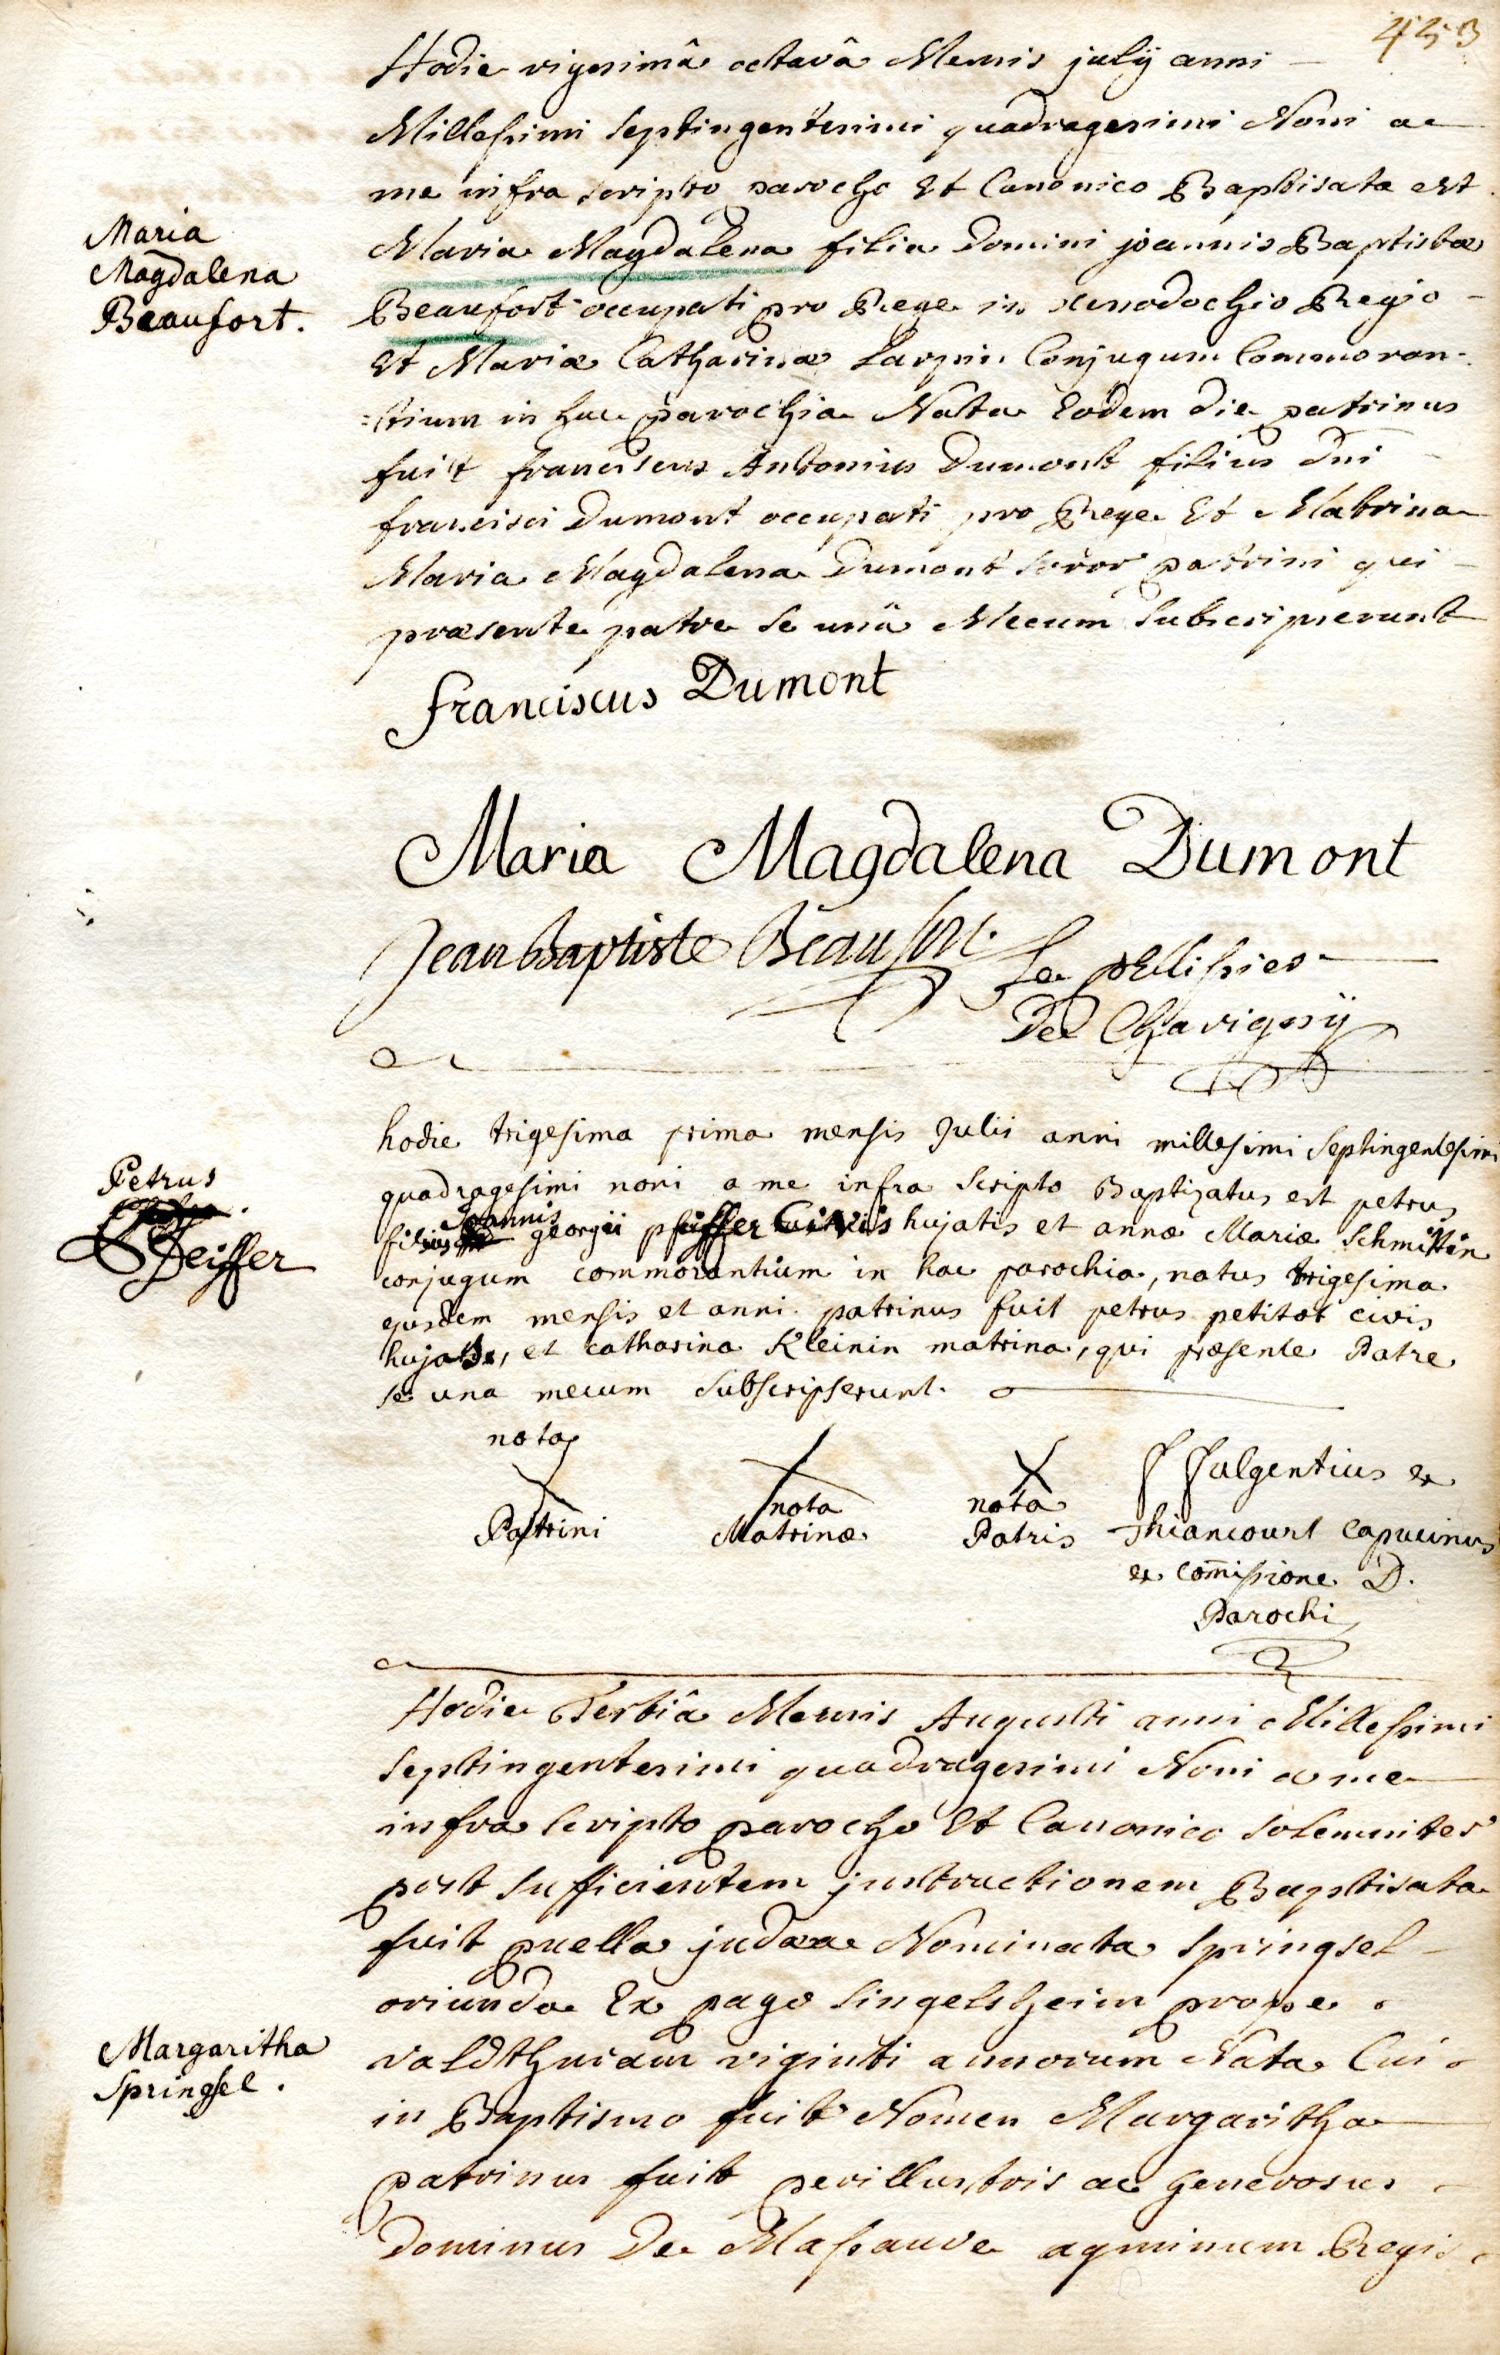 453
Hodie vigesimâ octavâ Mensis julÿ anni
Millessimi septingentesimi quadragesimi Noni a
me infra scripto parocho Et Canonico Baptisata est
Maria Magdalena filia Domini joannis Baptistæ
Maria
Magdalena
Beaufort.
Beaufort occupati pro Rege in xenodochio Regio
Et Mariæ Catharinæ Conjugum Commoran-
=tium in hac parochia Nata Eodem die patrinus
fuit franciscus Antonius Dumont filius Dni
francisci Dumont occupati pro Rege Et Matrina
Maria Magdalena Dumont soror patrini qui
præsente patre se unâ Mecum subscripserunt
franciscus Dumont
Maria Magdalena Dumont
Jean Baptiste Beaufort.
Le pellissier
De Chavignÿ
hodie trigesima prima mensis Julii anni millesimi septingentesimi
Petrus
Pfeiffer
quadragesimi noni a me infra scripto Baptizatus est petrus
filius Joannis georgii pfeiffer Civis hujatis et annæ Mariæ Schmittin
conjugum commorantium in hac parochia, natus trigesima
ejusdem mensis et anni. patrinus fuit petrus petitot civis
hujatis, et catharina Kleinin matrina, qui præsente Patre
se una mecum subscripserunt.
nota
Patrini
nota
Matrinæ
nota
Patris
f fulgentius ex
thiancourt capucinus
ex com̄issione D.
Parochi
Hodie Tertiâ Mensis Augusti anni Millessimi
septingentesimi quadragesimi Noni a me
infra scripto parocho Et Canonico solemniter
post sufficientem instructionem Baptisata
fuit puella judæa Nominata springsel
oriunda Ex pago singelsheim prope
valdthuram viginti annorum Nata Cui
Margaritha
Springsel.
in Baptismo fuit Nomen Margaritha
patrinus fuit perillustris ac generosus
Dominus De Massauve agminum Regis